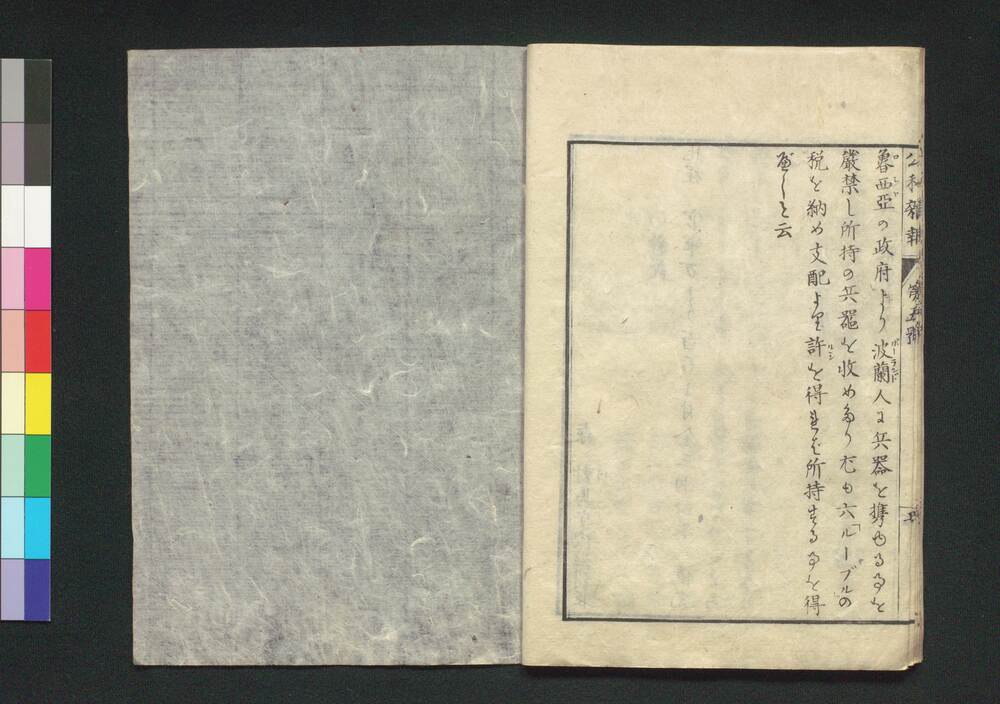 公私雑報
第五號
魯西亞の政府より波蘭人に兵器を携ゆる事を
嚴禁し所持の兵器を收め尤も六「ルーブルの
税を納め支配より許を得れば所持する事を得
べしと云